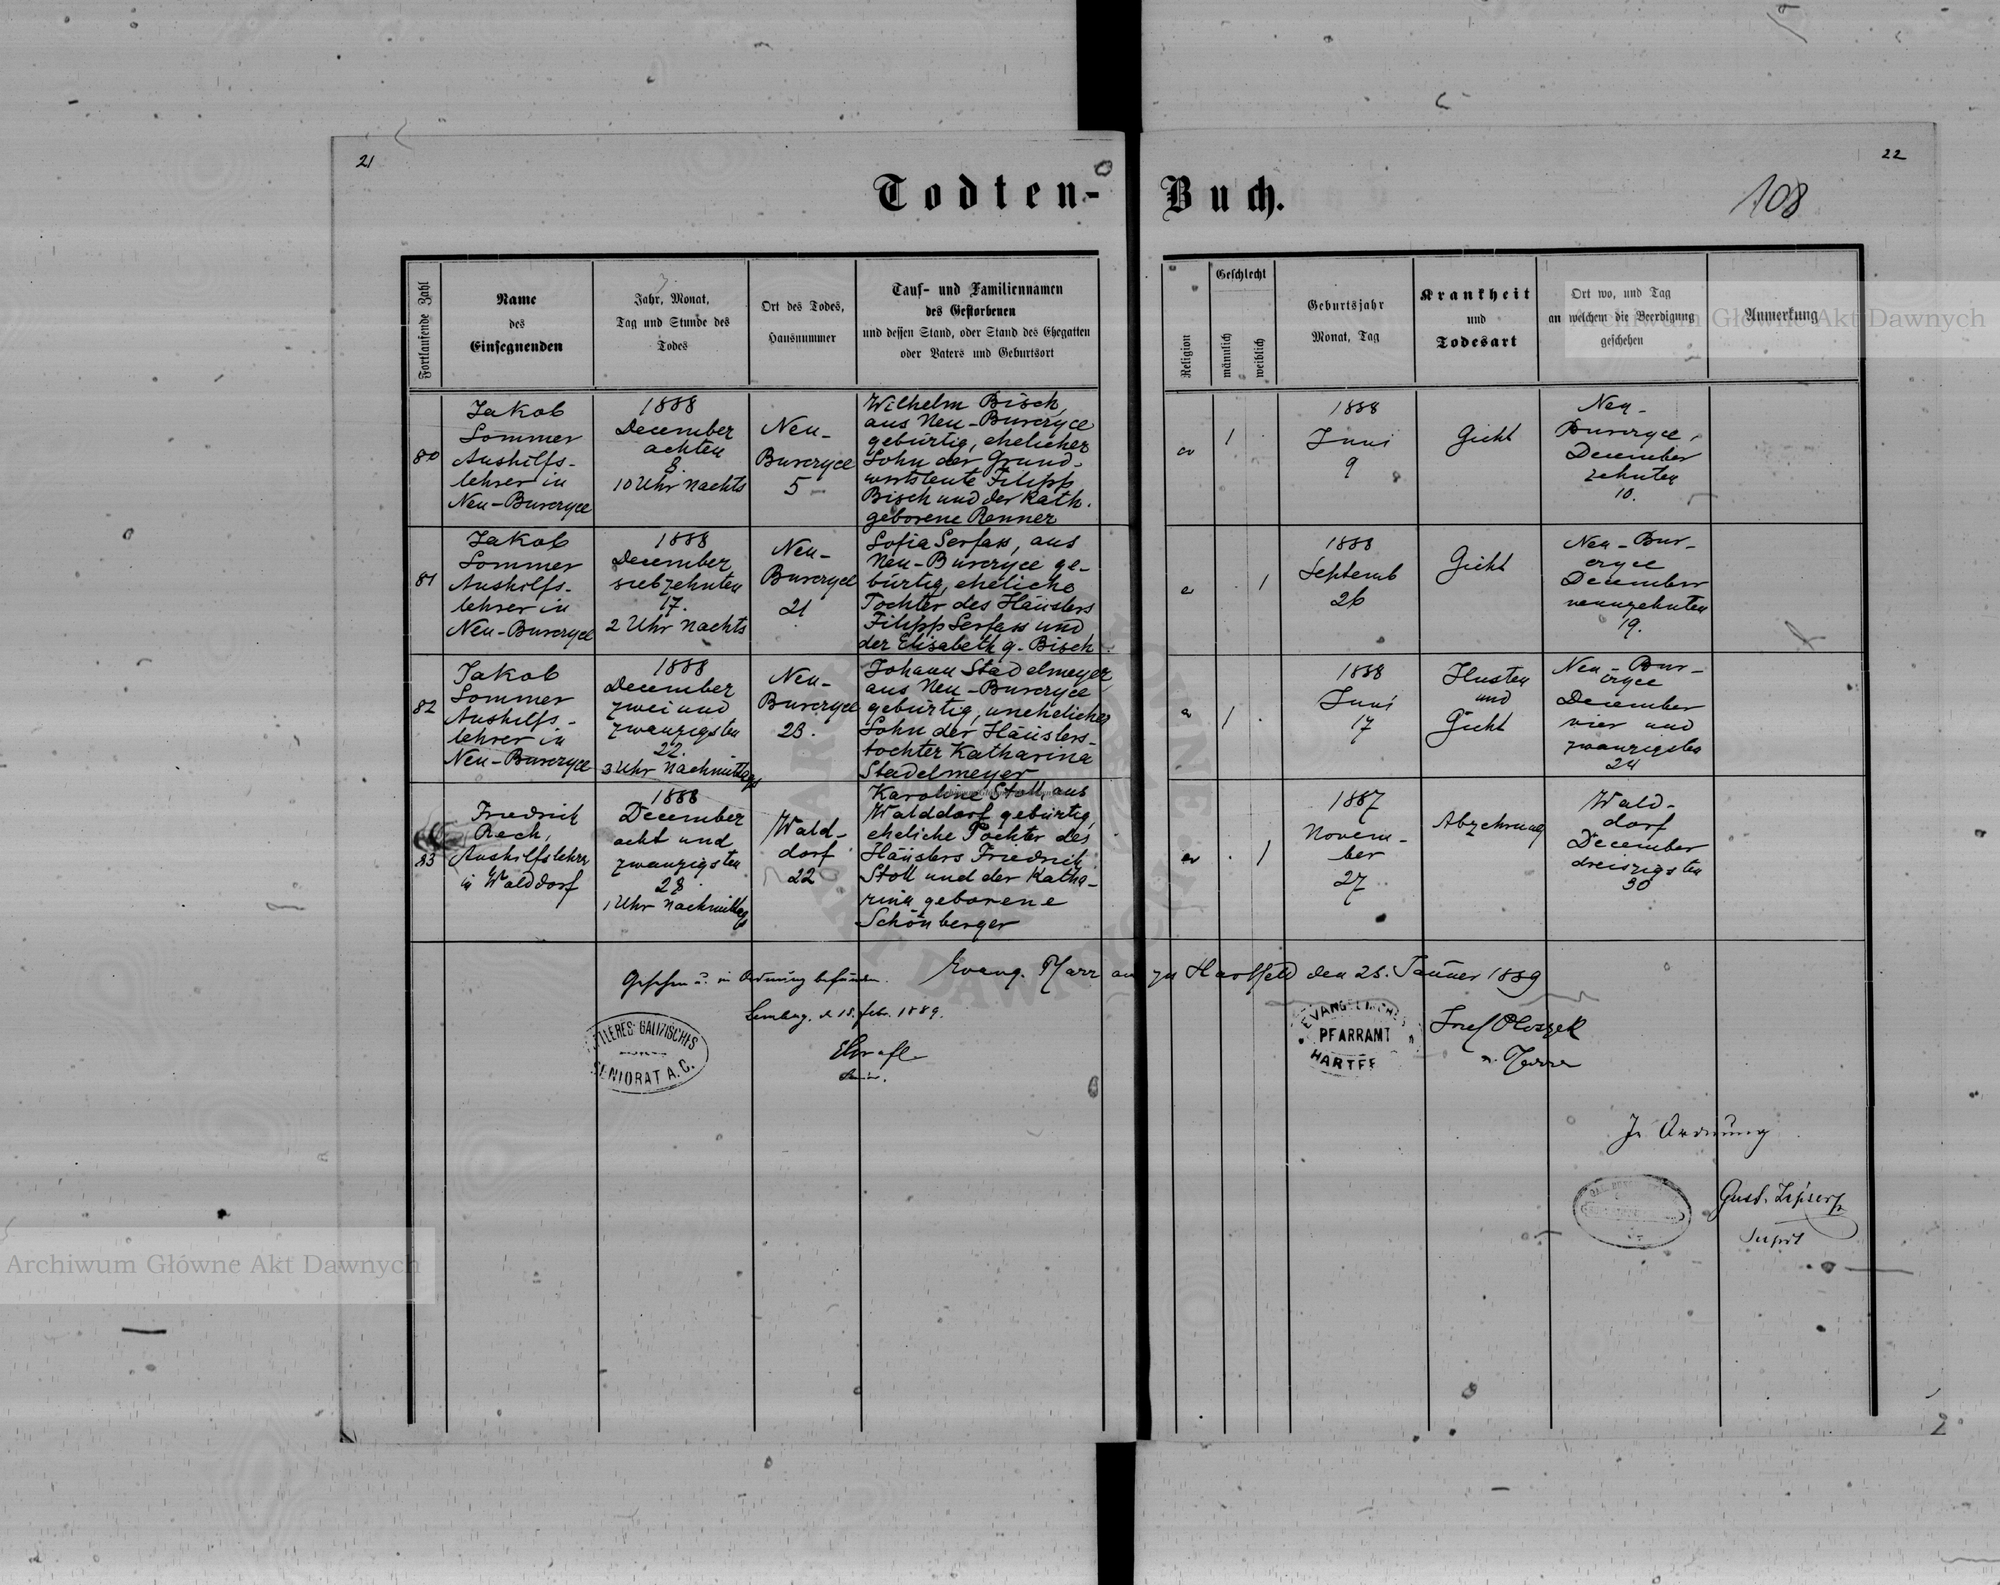 21
22
Todten-Buch.
108
Fortlaufende Zahl
Name
des
Einsegnenden
Jahr, Monat,
Tag und Stunde des
Todes
Ort des Todes,
Hausnummer
Tauf- und Familiennamen
des Gestorbenen
und dessen Stand, oder Stand des Ehegatten
oder Vaters und Geburtsort
Religion
Geschlecht
männlich
weiblich
Geburtsjahr
Monat, Tag
Krankheit
und
Todesart
Ort wo, und Tag
an welchem die Beerdigung
geschehen
Anmerkung
80
Jakob
Sommer
Aushilfs-
lehrer in
Neu-Burczyce
1888
December
achten
8.
10 Uhr Nachts
Neu-
Burczyce
5
Wilhelm Bisch,
aus Neu-Burczyce
gebürtig, ehelicher
Sohn der Grund-
wirtsleute Filipp
Bisch und der Kath.
geborene Renner
ev
1
1888
Juni
9
Gicht
Neu-
Burczyce,
December
zehnten
10.
81
Jakob
Sommer
Aushilfs-
lehrer in
Neu-Burczyce
1888
December
siebzehnten
17.
2 Uhr Nachts
Neu-
Burczyce
21
Sofia Serfass, aus
Neu-Burczyce ge-
bürtig, eheliche
Tochter des Häuslers
Filipp Serfass und
der Elisabeth g. Bisch
1
1888
Septemb
26
Gicht
Neu-Bur-
czyce
December
neunzehnten
19.
82
Jakob
Sommer
Aushilfs-
lehrer in
Neu-Burczyce
1888
December
zwei und
zwanzigsten
22.
3 Uhr Nachmittags
Neu-
Burczyce
23.
Johann Stadelmeyer
aus Neu-Burczyce
gebürtig, unehelicher
Sohn der Häuslers-
tochter Katharina
Stadelmeyer
1
1888
Juni
17
Husten
und
Gicht
Neu-Bur-
czyce
December
vier und
zwanzigsten
24
83
Friedrich
Rech,
Aushilfslehrer
in Walddorf
1888
December
acht und
zwanzigsten
28.
1 Uhr Nachmittags
Wald-
dorf
22
Karoline Stoll aus
Walddorf gebürtig,
eheliche Tochter des
Häuslers Friedrich
Stoll und der Katha-
rina geborene
Schönberger
ev
1
1887
Novem-
ber
27
Abzehrung
Wald-
dorf
December
dreiszigsten
30
Evang. Pfarramt zu Hartfeld den 25. Jänner 1889
Gesehen u. in Ordnung befunden.
Lemberg, d. 15. febr. 1889.
MITTLERES GALIZISCHES
SENIORAT A.C.
EVANGELISCHES
PFARRAMT
HARTFE
Josef Ploszek
Pfarrer
In Ordnung
Gust. Zipser
Supdt
Archiwum Główne Akt Dawnych
Archiwum Główne Akt Dawnych